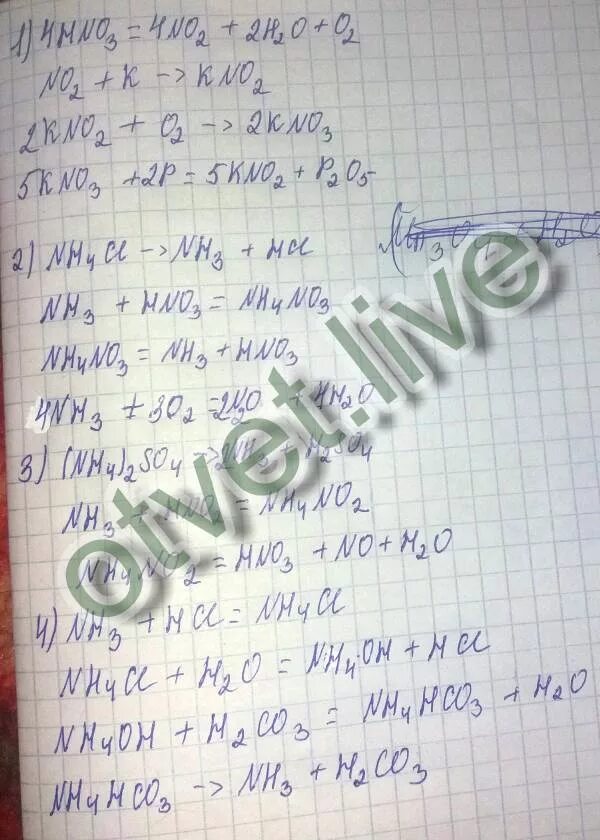 1) 4HNO3 = 4NO2 + 2H2O + O2
NO2 + K -> KNO2
2KNO2 + O2 -> 2KNO3
5KNO3 + 2P = 5KNO2 + P2O5
2) NH4Cl -> NH3 + HCl
NH3 + HNO3 = NH4NO3
NH4NO3 = NH3 + HNO3
4NH3 + 3O2 = + H2O
3) (NH4)2SO4 -> 2NH3 + H2SO4
NH3 + HNO2 = NH4NO2
NH4NO2 = HNO3 + NO + H2O
4) NH3 + HCl = NH4Cl
NH4Cl + H2O = NH4OH + HCl
NH4OH + H2CO3 = NH4HCO3 + H2O
NH4HCO3 -> NH3 + H2CO3
otvet.live